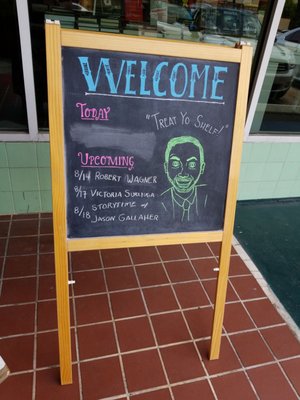 WELCOME
TODAY
"TREAT YO SHELF!"
UPCOMING
8/14 ROBERT WAGNER
8/17 VICTORIA
STORYTIME
8/18 JASON GALLAHER